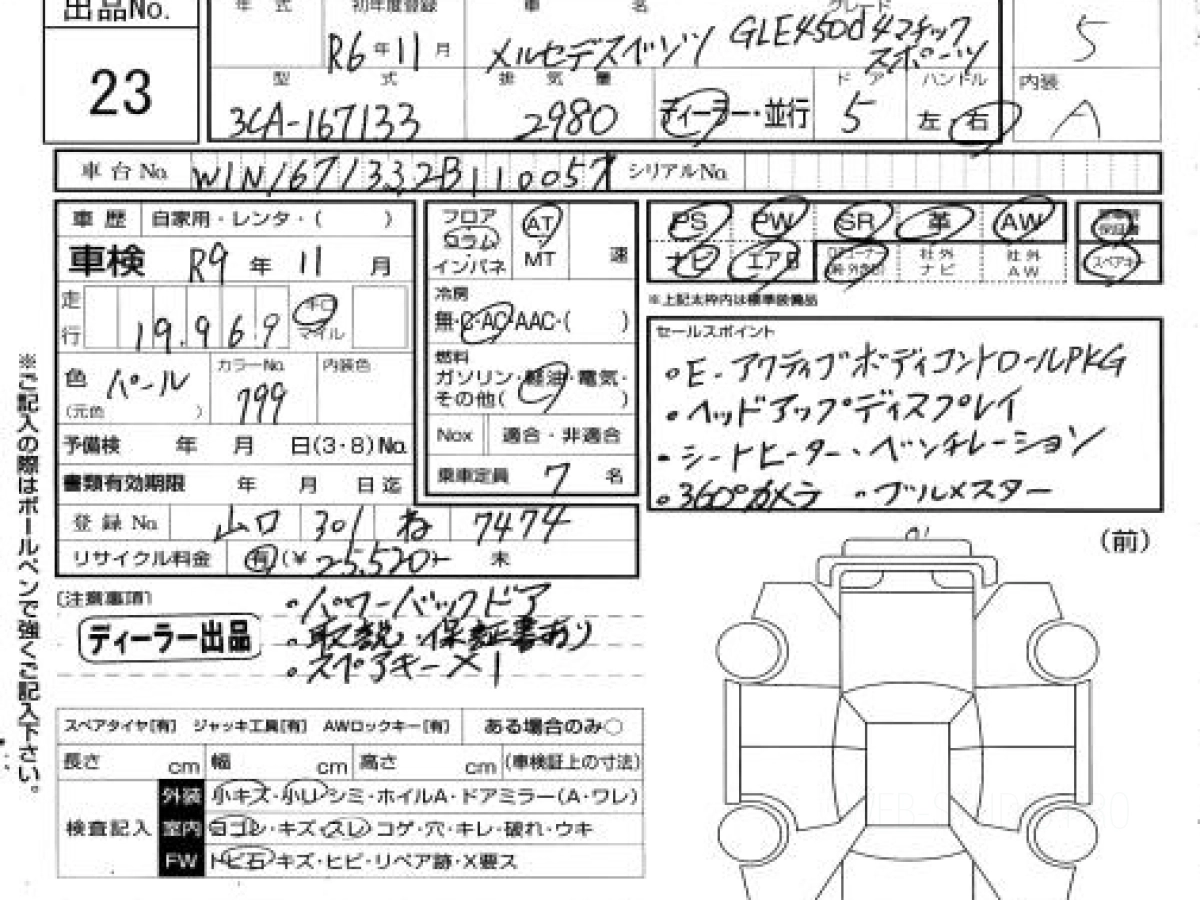 出品No. 年 式 初年度登録 車 名 グレード
23 R6年11月 メルセデスベンツ GLE450d4マチック スポーツ 5
型 式 排 気 量 ドア ハンドル 内装
3CA-167133 2980 ディーラー・並行 5 左 右 A
車台No. W1N1671332B110057 シリアルNo.
車 歴 自家用・レンタ・( )
車検 R9年 11月
走行 19.969 キロ マイル
色 パール (元色 ) カラーNo. 799 内装色
予備検 年 月 日(3・8)No.
書類有効期限 年 月 日迄
登録No. 山口 301 ね 7474
リサイクル料金 有(¥25,520- 未
フロア コラム インパネ AT・MT 速
冷房
無・C・AC・AAC・( )
燃料
ガソリン・軽油・電気・
その他( )
Nox 適合・非適合
乗車定員 7 名
PS PW SR 革 AW 保証書
ナビ エアB 社外ナビ 社外AW スペアキー
※上記太枠内は標準装備品
セールスポイント
・E-アクティブボディコントロールPKG
・ヘッドアップディスプレイ
・シートヒーター、ベンチレーション
・360°カメラ ・ブルメスター
(前)
[注意事項]
ディーラー出品
・パワーバックドア
・取説・保証書あり
・スペアキー×1
スペアタイヤ[有] ジャッキ工具[有] AWロックキー[有] ある場合のみ○
長さ cm 幅 cm 高さ cm (車検証上の寸法)
検査記入
外装 小キズ・小凹・シミ・ホイルA・ドアミラー(A・ワレ)
室内 ヨゴレ・キズ・スレ・コゲ・穴・キレ・破れ・ウキ
FW トビ石・キズ・ヒビ・リペア跡・X要ス
※ご記入の際はボールペンで強くご記入下さい。